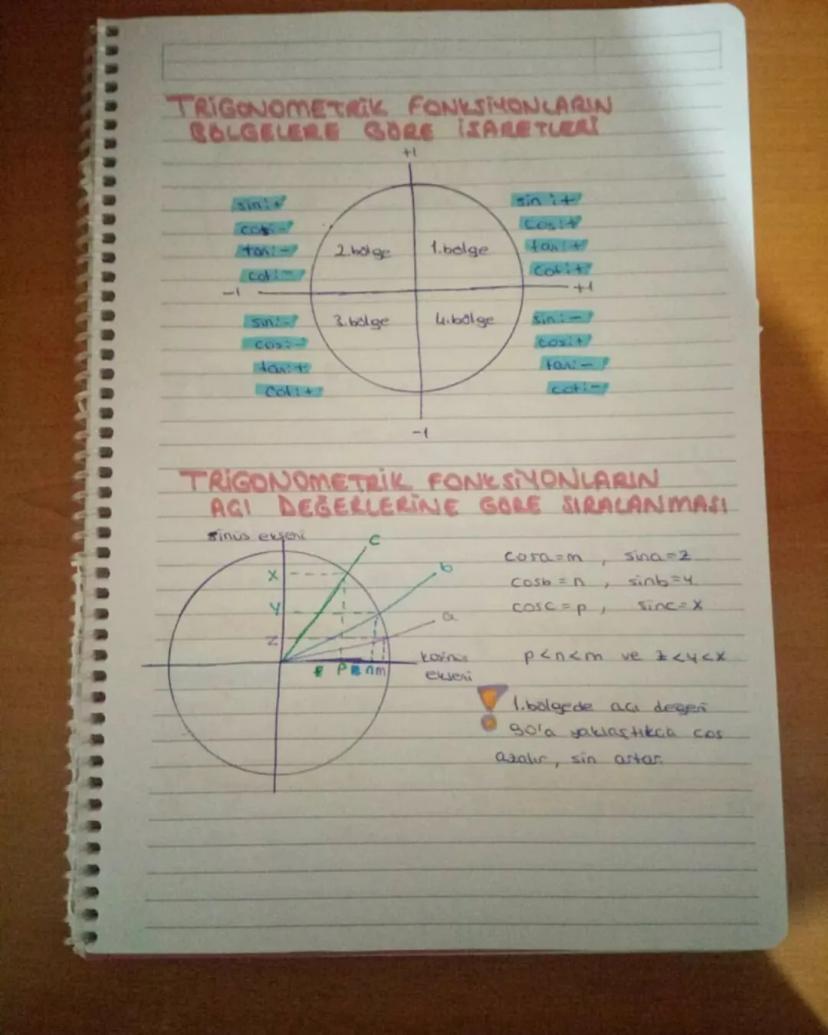 TRİGONOMETRİK FONKSİYONLARIN
BÖLGELERE GÖRE İŞARETLERİ
+1
sin:+
cos:-
tan:-
cot:-
2.bölge
1.bölge
sin:+
cos:+
tan:+
cot:+
-1
+1
sin:-
cos:-
tan:+
cot:+
3.bölge
4.bölge
sin:-
cos:+
tan:-
cot:-
-1
TRİGONOMETRİK FONKSİYONLARIN
AÇI DEĞERLERİNE GÖRE SIRALANMASI
sinüs ekseni
c
b
a
x
y
z
p
n m
kosinüs
ekseni
cosa=m , sina=z
cosb=n , sinb=y
cosc=p , sinc=x
p<n<m ve z<y<x
1.bölgede açı değeri
90'a yaklaştıkça cos
azalır, sin artar.